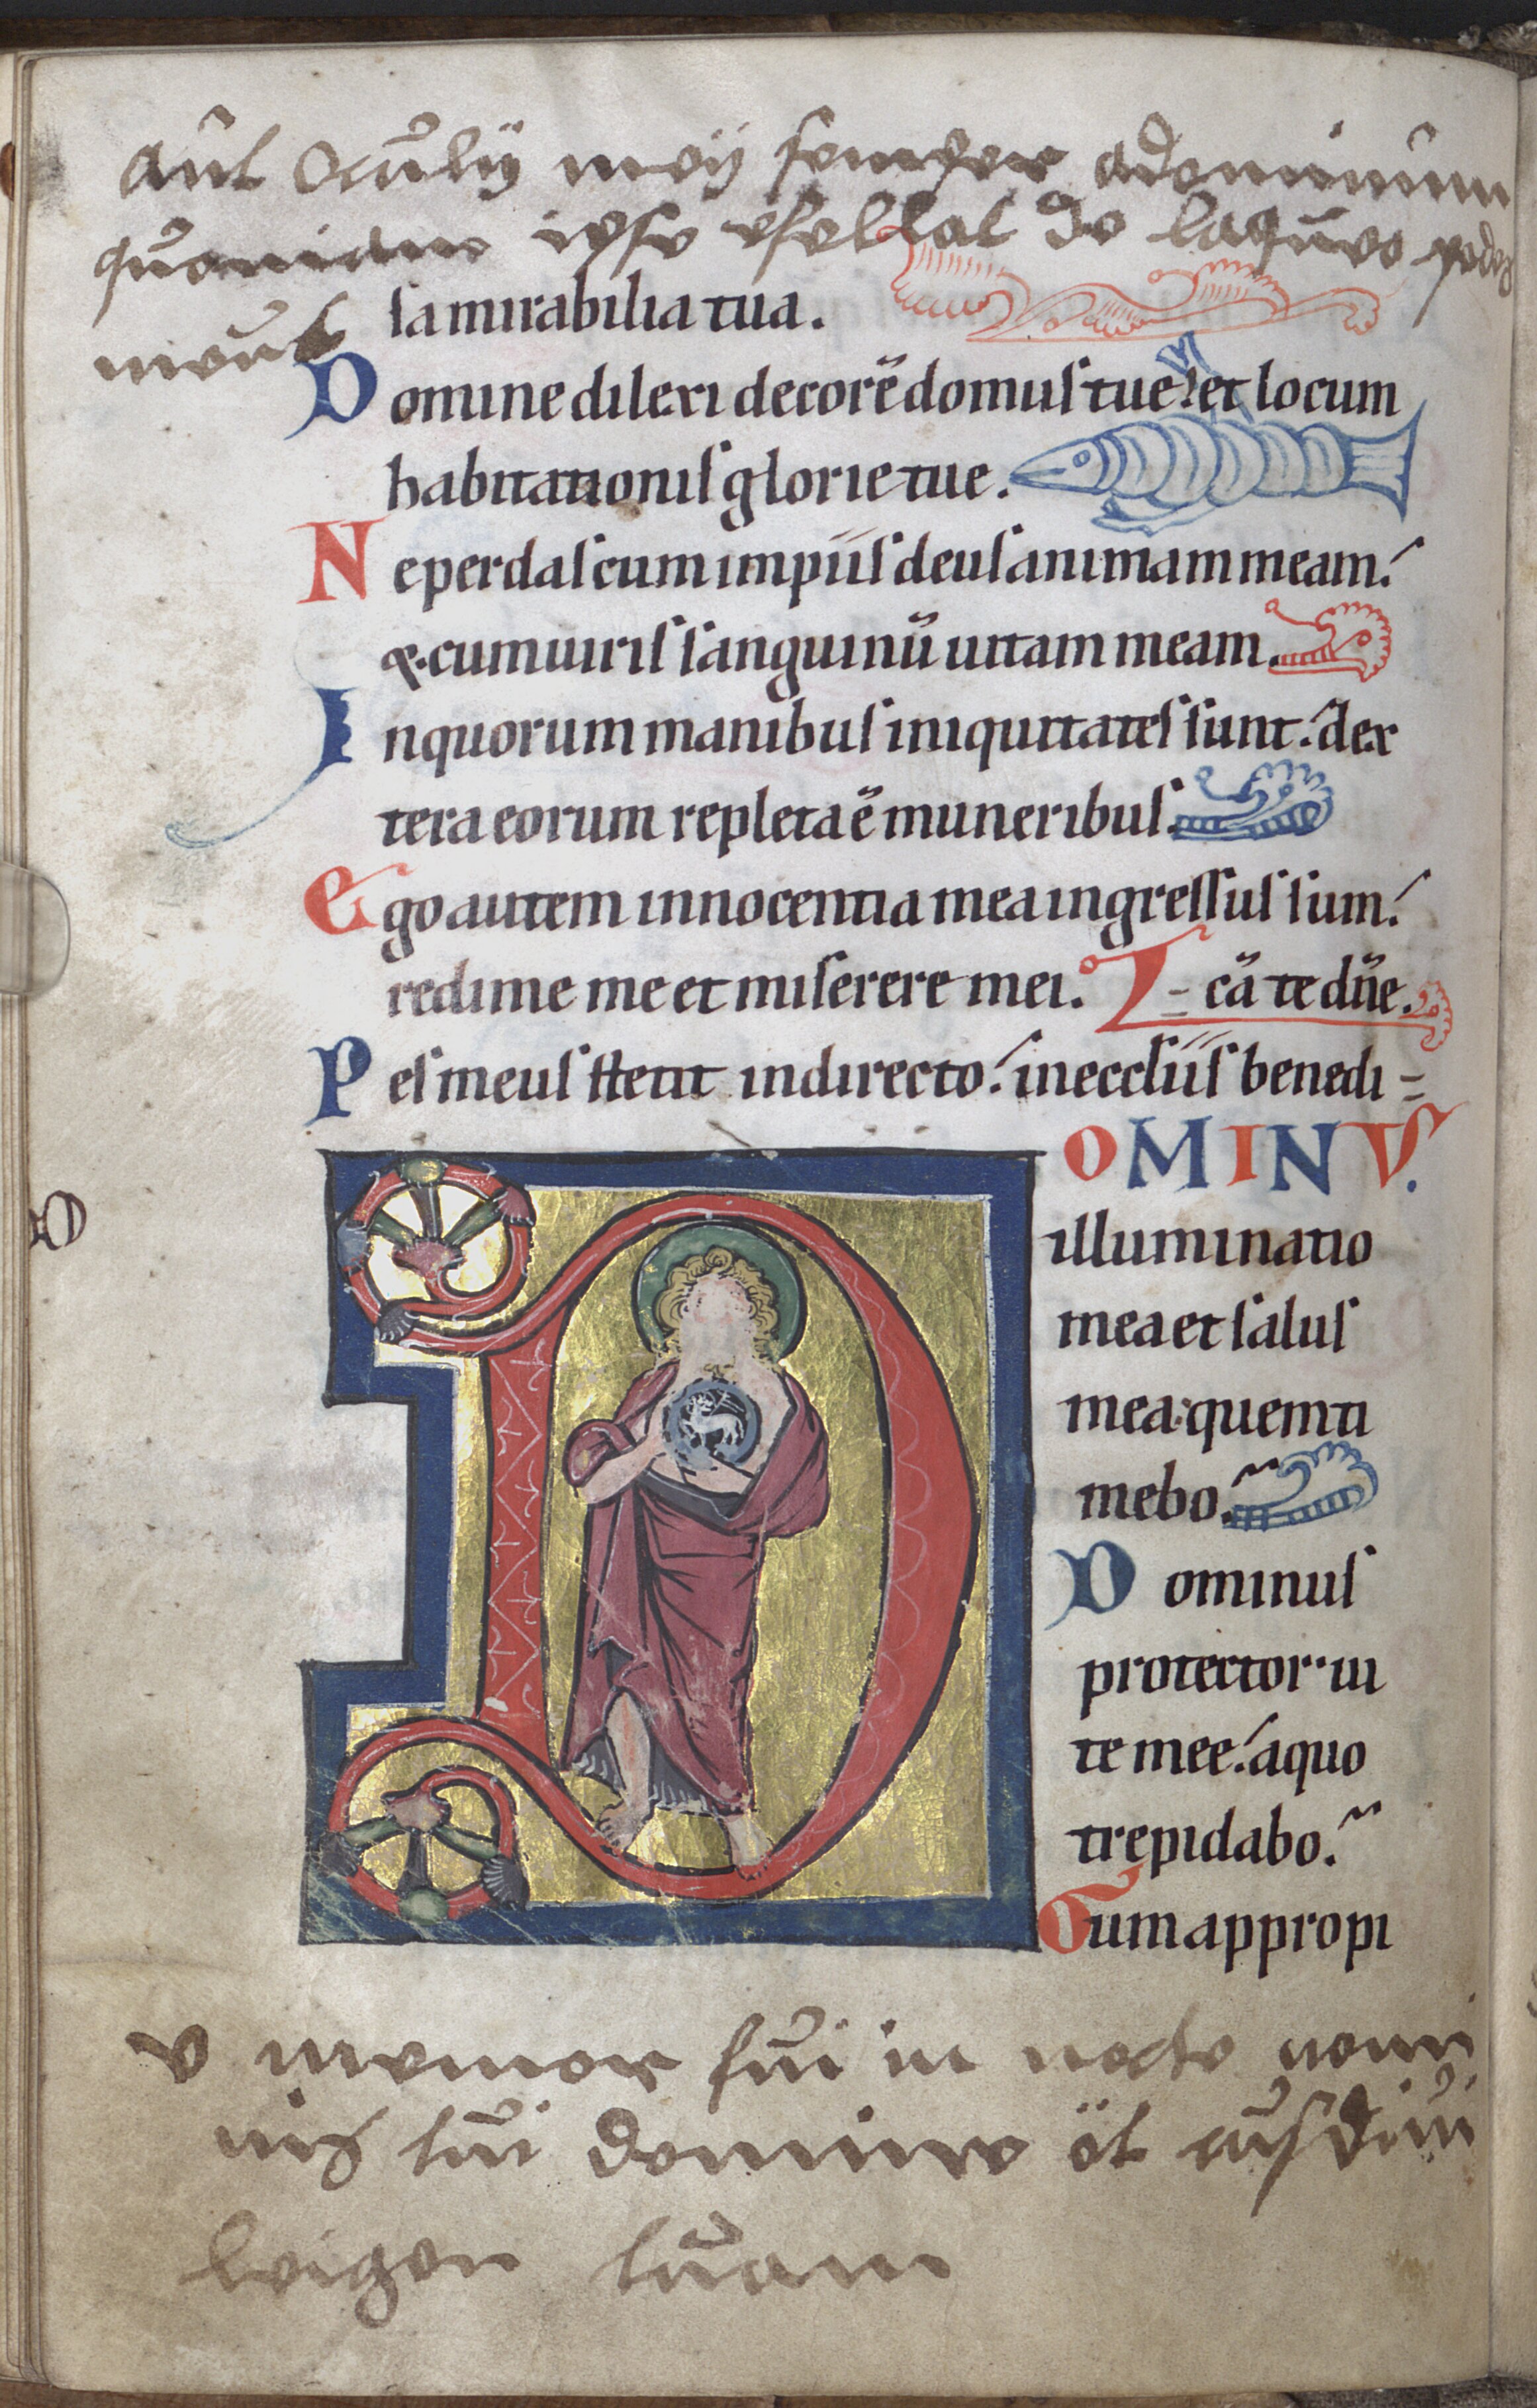 Ant Oculij meij semper adominum
quoniam ipse de laqueo
ſa mirabilia tua.
Domine dilexi decorē domuſ tue: et locum
habitationiſ glorie tue.
Ne perdaſ cum impiiſ deuſ animam meam:
& cum uiriſ ſanguinū uitam meam.
In quorum manibuſ iniquitateſ ſunt: dex
tera eorum repleta ē muneribuſ.
Ego autem innocentia mea ingreſſuſ ſum:
redime me et miſerere mei. - cā te dn̄e.
Peſ meuſ ſtetit in directo: in eccliiſ benedi-
DOMINVS.
illuminatio
mea et ſaluſ
mea: quem ti
mebo.
Dominuſ
protector ui
te mee: a quo
trepidabo.
Dum appropi
fui in nocte nomi
nis tui domine et custodiui
legem tuam